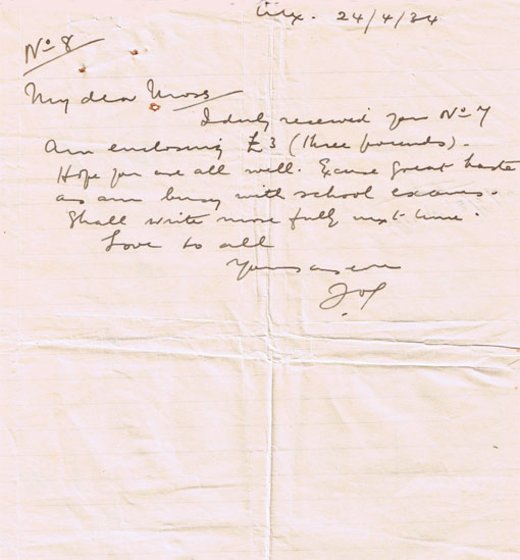 Alx. 24/4/34
No 8
My dear Moss
I duly received your No 7
Am enclosing £3 (three pounds).
Hope you are all well. Excuse great haste
as am busy with school exams.
Shall write more fully next time.
Love to all
Yours as ever